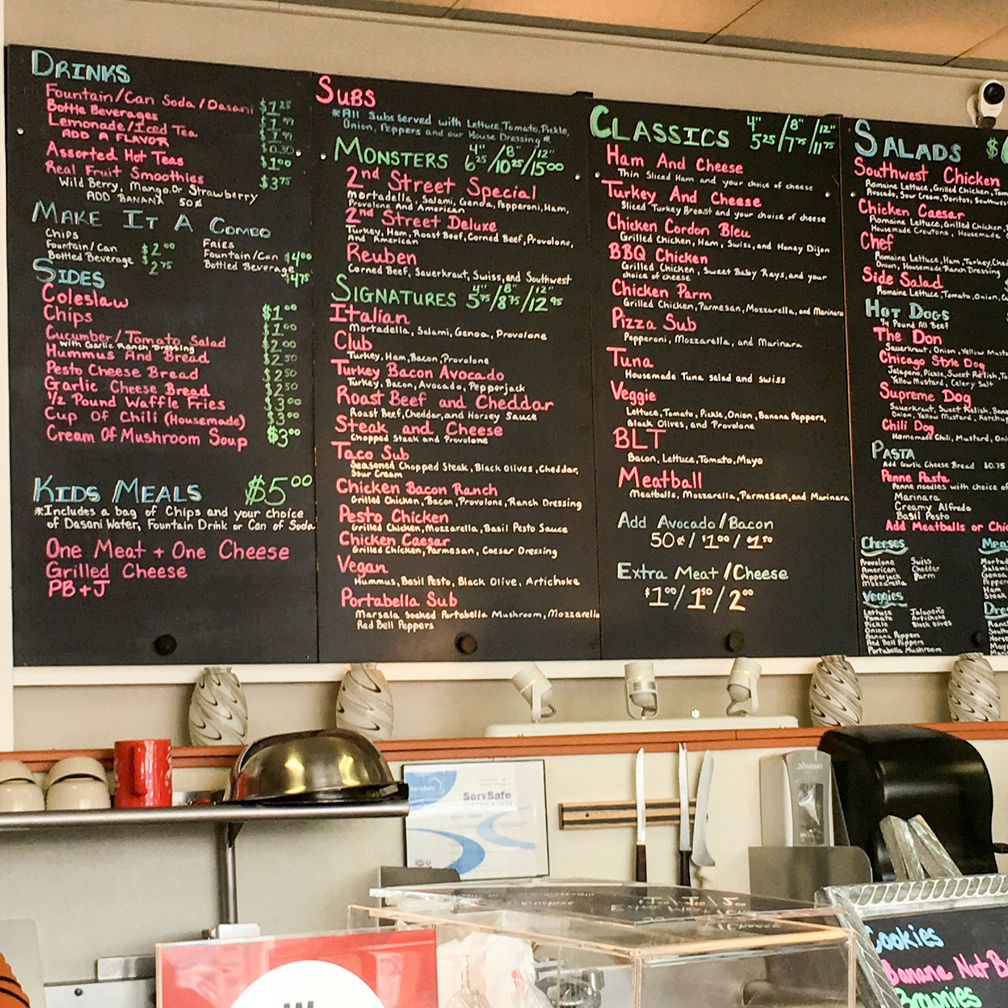 DRINKS
Fountain/Can Soda/Dasani $1.25
Bottle Beverages
Lemonade/Iced Tea $1.99
ADD A FLAVOR $0.30
Assorted Hot Teas $1.00
Real Fruit Smoothies $3.75
Wild Berry, Mango, Or Strawberry
ADD BANANA 50¢
MAKE IT A COMBO
Chips
Fountain/Can $2.00
Bottled Beverage 2.75
Fries
Fountain/Can $4.00
Bottled Beverage $4.75
SIDES
Coleslaw $1.00
Chips $1.00
Cucumber/Tomato Salad $2.00
with Garlic Ranch Dressing
Hummus And Bread $2.50
Pesto Cheese Bread $2.50
Garlic Cheese Bread $2.50
1/2 Pound Waffle Fries $3.00
Cup Of Chili (Housemade) $3.00
Cream Of Mushroom Soup $3.00
KIDS MEALS $5.00
*Includes a bag of Chips and your choice
of Dasani Water, Fountain Drink or Can of Soda
One Meat + One Cheese
Grilled Cheese
PB+J
SUBS
*All Subs Served with Lettuce, Tomato, Pickle,
Onion, Peppers and our House Dressing*
MONSTERS 4" 8" 12"
6.25/10.25/15.00
2nd Street Special
Mortadella, Salami, Genoa, Pepperoni, Ham,
Provolone And American
2nd Street Deluxe
Turkey, Ham, Roast Beef, Corned Beef, Provolone,
And American
Reuben
Corned Beef, Sauerkraut, Swiss, and Southwest
SIGNATURES 4" 8" 12"
5.75/8.75/12.95
Italian
Mortadella, Salami, Genoa, Provolone
Club
Turkey, Ham, Bacon, Provolone
Turkey Bacon Avocado
Turkey, Bacon, Avocado, Pepperjack
Roast Beef and Cheddar
Roast Beef, Cheddar, and Horsey Sauce
Steak and Cheese
Chopped Steak and Provolone
Taco Sub
Seasoned Chopped Steak, Black Olives, Cheddar,
Sour Cream
Chicken Bacon Ranch
Grilled Chicken, Bacon, Provolone, Ranch Dressing
Pesto Chicken
Grilled Chicken, Mozzarella, Basil Pesto Sauce
Chicken Caesar
Grilled Chicken, Parmesan, Caesar Dressing
Vegan
Hummus, Basil Pesto, Black Olive, Artichoke
Portabella Sub
Marsala Soaked Portabella Mushroom, Mozzarella
Red Bell Peppers
CLASSICS 4" 8" 12"
5.25/7.75/11.75
Ham And Cheese
Thin Sliced Ham and your choice of cheese
Turkey And Cheese
Sliced Turkey Breast and your choice of cheese
Chicken Cordon Bleu
Grilled Chicken, Ham, Swiss, and Honey Dijon
BBQ Chicken
Grilled Chicken, Sweet Baby Rays, and your
choice of cheese
Chicken Parm
Grilled Chicken, Parmesan, Mozzarella, and Marinara
Pizza Sub
Pepperoni, Mozzarella, and Marinara
Tuna
Housemade Tuna salad and swiss
Veggie
Lettuce, Tomato, Pickle, Onion, Banana Peppers,
Black Olives, and Provolone
BLT
Bacon, Lettuce, Tomato, Mayo
Meatball
Meatballs, Mozzarella, Parmesan, and Marinara
Add Avocado/Bacon
50¢/$1.00/$1.50
Extra Meat/Cheese
$1.00/1.50/2.00
SALADS
Southwest Chicken
Romaine Lettuce, Grilled Chicken,
Avocado, Sour Cream, Doritos,
Chicken Caesar
Romaine Lettuce, Grilled Chicken
Housemade Croutons, Housemade
Chef
Romaine Lettuce, Ham, Turkey,
Onion, Housemade Ranch Dressing
Side Salad
Romaine Lettuce, Tomato, Onion,
HOT DOGS
1/4 Pound All Beef
The Don
Sauerkraut, Onion, Yellow
Chicago Style Dog
Jalapeno, Pickle, Sweet Relish,
Yellow Mustard, Celery Salt
Supreme Dog
Sauerkraut, Sweet Relish,
Onion, Yellow Mustard,
Chili Dog
Homemade Chili, Mustard,
PASTA
Add Garlic Cheese Bread $0.75
Penne Pasta
Penne noodles with choice of
Marinara
Creamy Alfredo
Basil Pesto
Add Meatballs or
Cheeses
Provolone Swiss
American Cheddar
Pepperjack Parm
Mozzarella
Veggies
Lettuce Jalapeño
Tomato Artichoke
Pickle Black olives
Onion
Banana Peppers
Red Bell Peppers
Portabella Mushroom
ServSafe
CERTIFICATION
Cookies
Banana Nut
Brownies
W